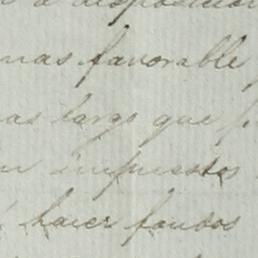 a disposicion
mas favorable
mas largo que
impuestos
hacer fondos